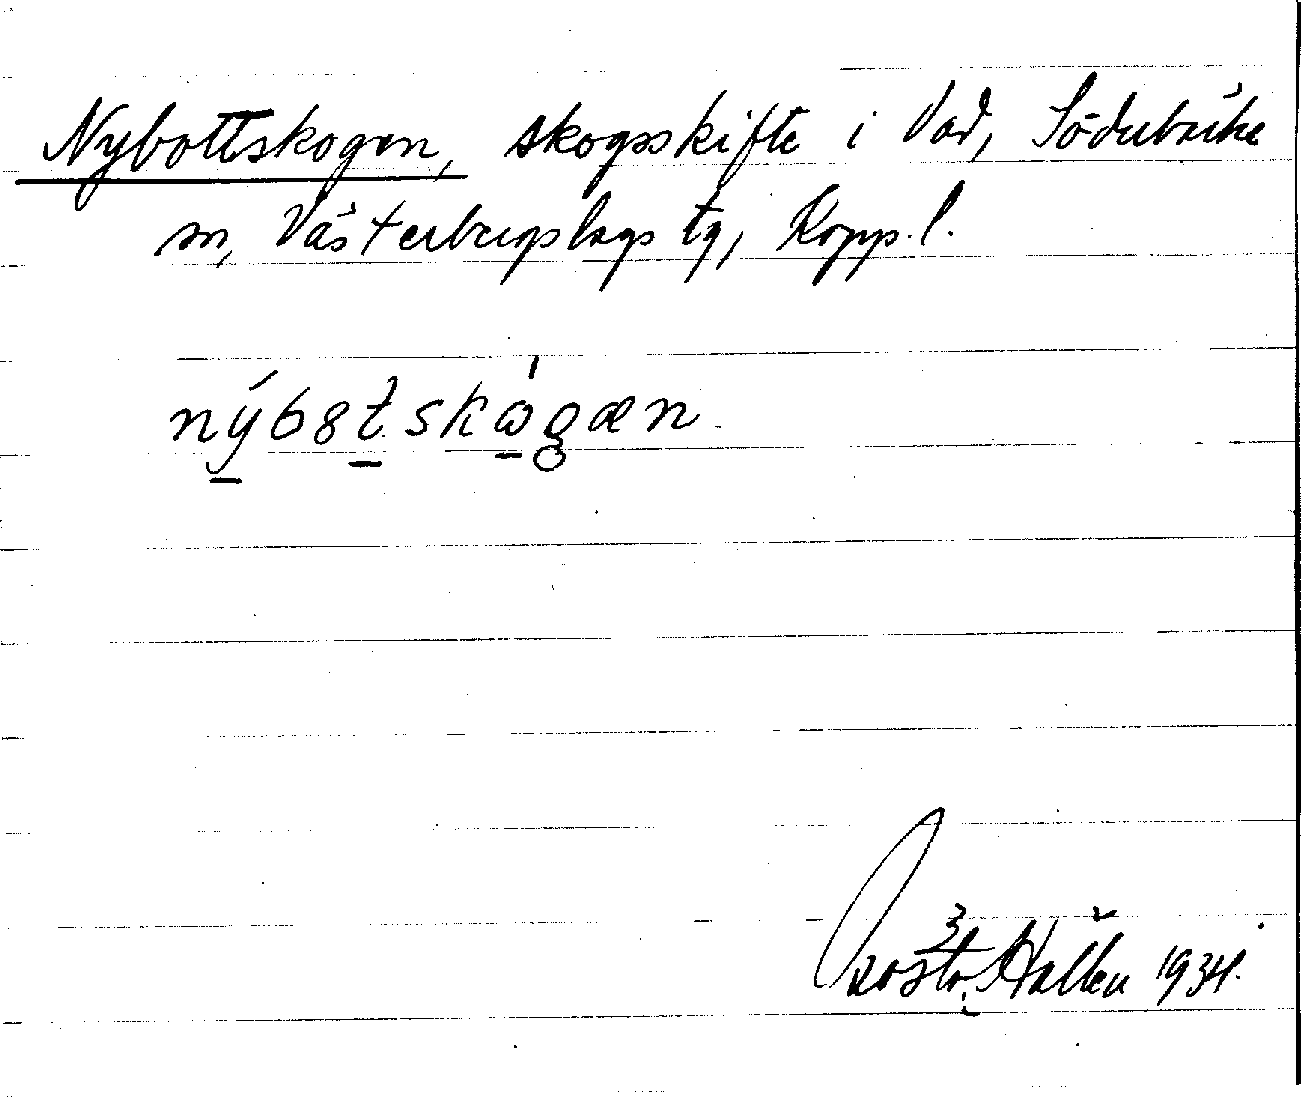 Nybottskogen, skogsskifte i Vad, Söderbärke
sn, Västerbergslags tg, Kopp. l.
nýbȣtskɷ̀gæn
Hallén 1934.